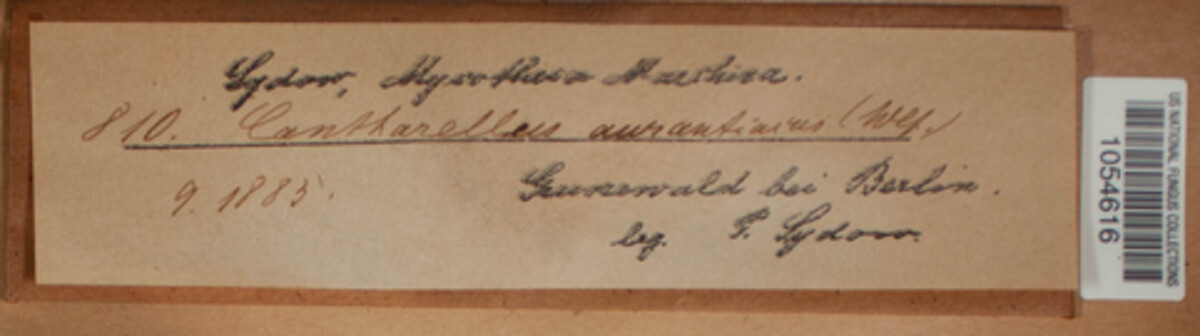 Sydow, Mycotheca Marchica.
810. Cantharellus aurantiacus (Wlf.)
9. 1885.
Grunewald bei Berlin.
leg. P. Sydow.
US NATIONAL FUNGUS COLLECTIONS
1054616